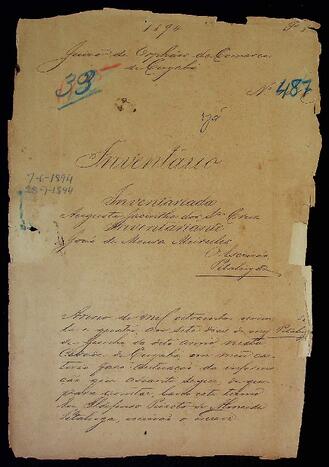 1894
Juizo de Orphãos da Comarca
de Cuyabá
33
Nº 487
Inventário
7-6-1894
28-7-1894
Inventariada
Augusta Jacintha da Sª Cruz
Inventariante
José de Mesura
O Escrivão
Pitaluga
Anno de mil oitocentos noven
ta e quatro, aos sete dias do mez
de Junho do dito anno nesta
Cidade de Cuyabá, em meu car
torio faço autuação da
que adiante segue, do que
para constar lavro este termo
Eu Peixoto de Almeida
Pitaluga, escrivão o escrevi